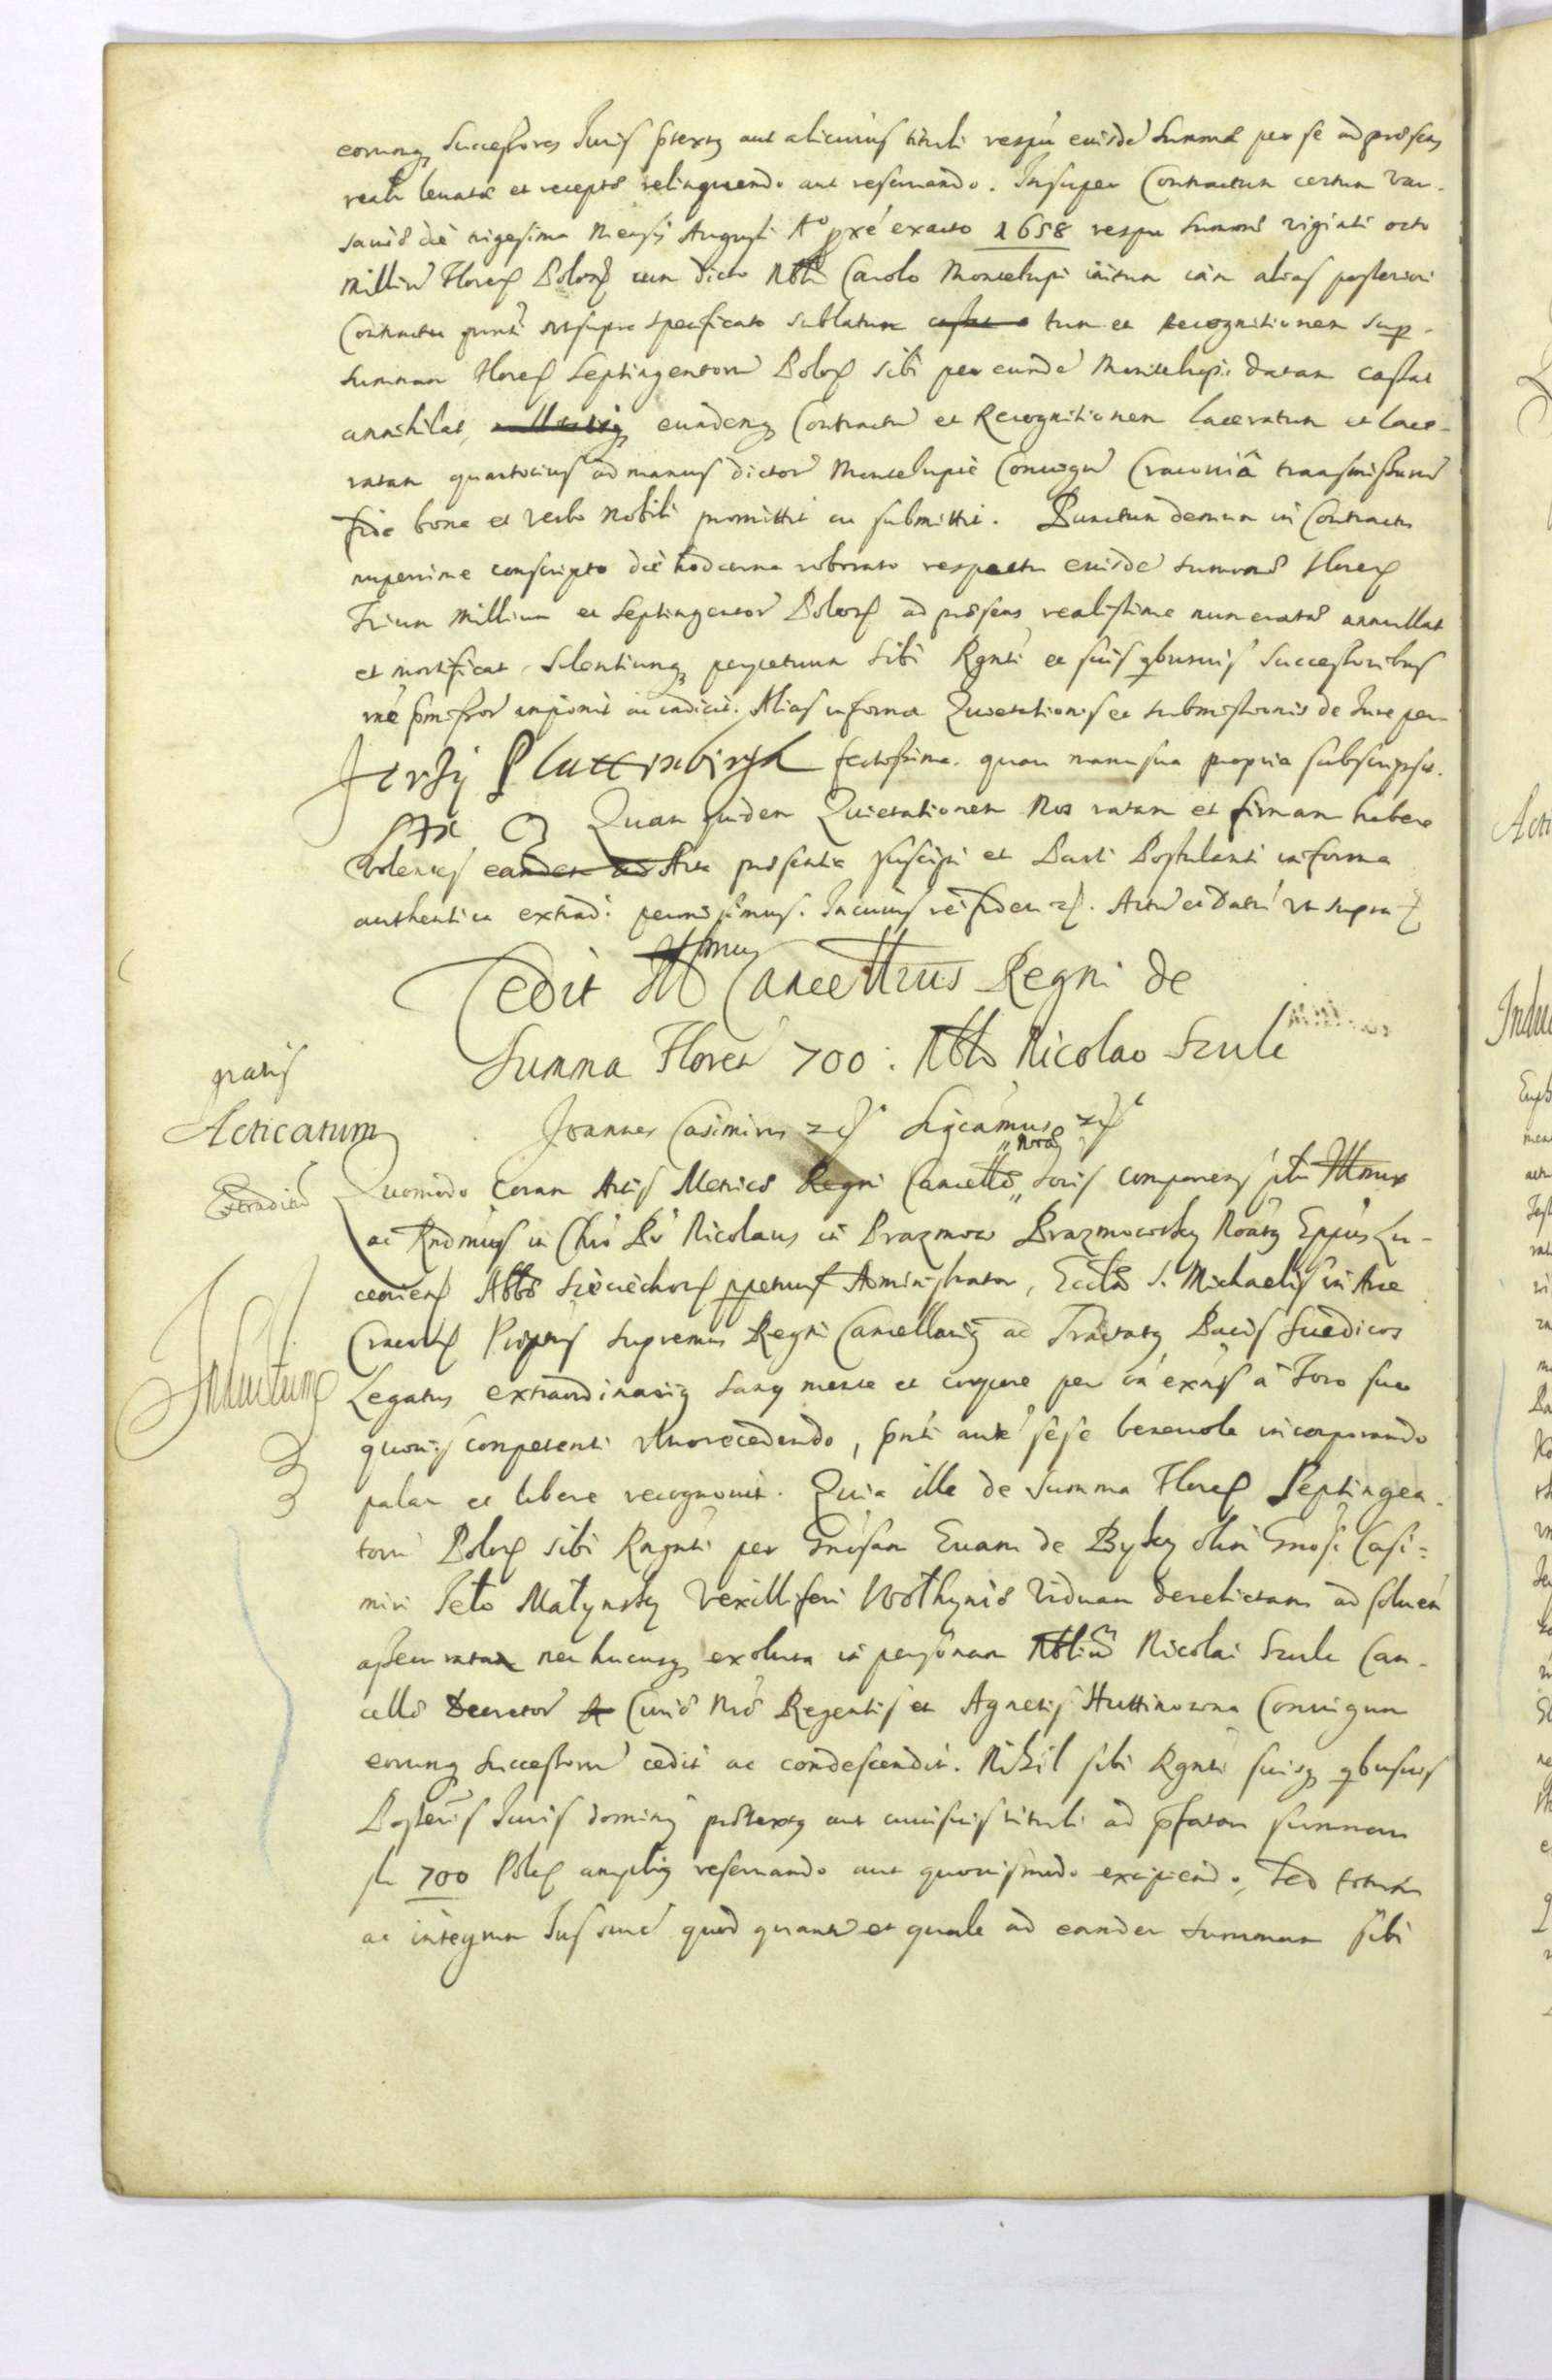 eorumq Successores Juris ptextq aut alicuius tituli respu eiusde Summæ per se ad præsens
realr levatæ et receptæ relinquendo aut reservando. Insuper Contractum certum Var-
saviæ die trigesima Mensis Augusti Aº pxe exacto 1658 respu Summæ viginti octo
Milliu Floren Polon cum dicto Nbli Carolo Montelupi initum iam alias posteriori
Contractu prnti utsupra specificato sublatum tum et Recognitionem sup
Summam Floren Septingentoru Polon sibi per eunde Montelupi datam cassat
annihilat, eundenq Contractu et Recognitionem laceratum et lace-
ratam quantocius ad manus dictor Montelupie Coniugu Cracoviâ transmissuru
fide bona et verbo Nobili promittit ac submittit. Punctum demum in Contractu
nuperrime conscripto die hodierna roborato respectu eiusde Summæ Floren
Trium Millium et Septingentor Polon ad præsens realissime numeratæ annullat
et mortificat, Silentiumq perpetuum sibi Rgnti et suis qbusvis Successoribus
rne pmissor imponit ac indicit. Alias in forma Quietationis et submissionis de Jure per-
Jerzy Pluttinbirgk fectissima. quam manu sua propria subscripsit.
Quam quidem Quietationem Nos ratam et firmam habere
volentes eandem ad Acta præsentia suscipi et Parti Postulanti in forma
authentica extradi permisimus. In cuius rei fidem etc. Actu et Datu ut supra
Cedit Illmus Cancellrius Regni de
Summa Floren 700: Nbli Nicolao Szulc
gratis
Acticatum
Joannes Casimirus etc Significamus etc
Extradit
Quomodo coram Actis Metrices Regni Cancellæ Nræ Loris comparens psnlr Illmus
ac Rndmus in Chro Pr Nicolaus in Prazmow Prazmowsky Noatq Eppus Lu-
ceoriens Abbæ Sieciechov ppetuus Administrator, Ecclæ S. Michaelis in Arce
Cracovien Pioptus Supremus Regni Cancellariq ac Tractatq Pacis Suedicos
Inductum
Legatus extraordinariq sanq mente et corpore per in exnss à Foro suo
quovis competenti recedendo, pnti aute sese benevole incorporando
palam et libere recognovit. Quia ille de Summa Floren Septingen-
toru Polon sibi Rngnti per Gnosam Evam de Bysky olim Gnosi Casi=
miri Jeło Małynsky Vexilliferi Wołhyniæ Viduam derelictam ad solven
assecuratam nec hucusq exoluta in personam Nblium Nicolai Szulc Can-
cellæ Decretor Curiæ Nræ Regentis et Agnetis Huttinowna Coniugum
eorumq Successoru cedit ac condescendit. Nihil sibi Rgnti suisq qbusvis
Posteris Juris dominij prætextq aut cuiusvis tituli ad pfatam summam
fl 700 Polon amplius reservando aut quovismodo excipiendo, Sed totum
ac integrum Jus suu quod quantu et quale ad eandem Summam sibi